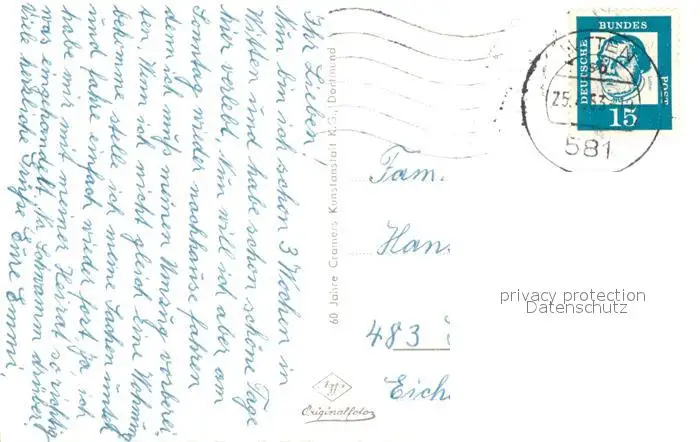 Ihr Lieben!
Nun bin ich schon 3 Wochen in
Witten und habe schon schöne Tage
hier verlebt. Nun will ich aber am
Sonntag wieder nachhause fahren
denn ich muß meinen Umzug vorberei
ten. Wenn ich nicht gleich eine Wohnung
bekomme stelle ich meine Sachen unter
und fahre einfach wieder fort. Ja, ich
habe mir mit meiner Heirat so richtig
was eingehandelt. Ja Schwamm drüber!
Viele herzliche Grüße Eure Emmi.
60 Jahre Cramers Kunstanstalt K.G., Dortmund
Agfa
Originalfoto
DEUTSCHE
BUNDES
POST
15
WITTEN
581
Fam.
Hans
483
Eich
privacy protection
Datenschutz